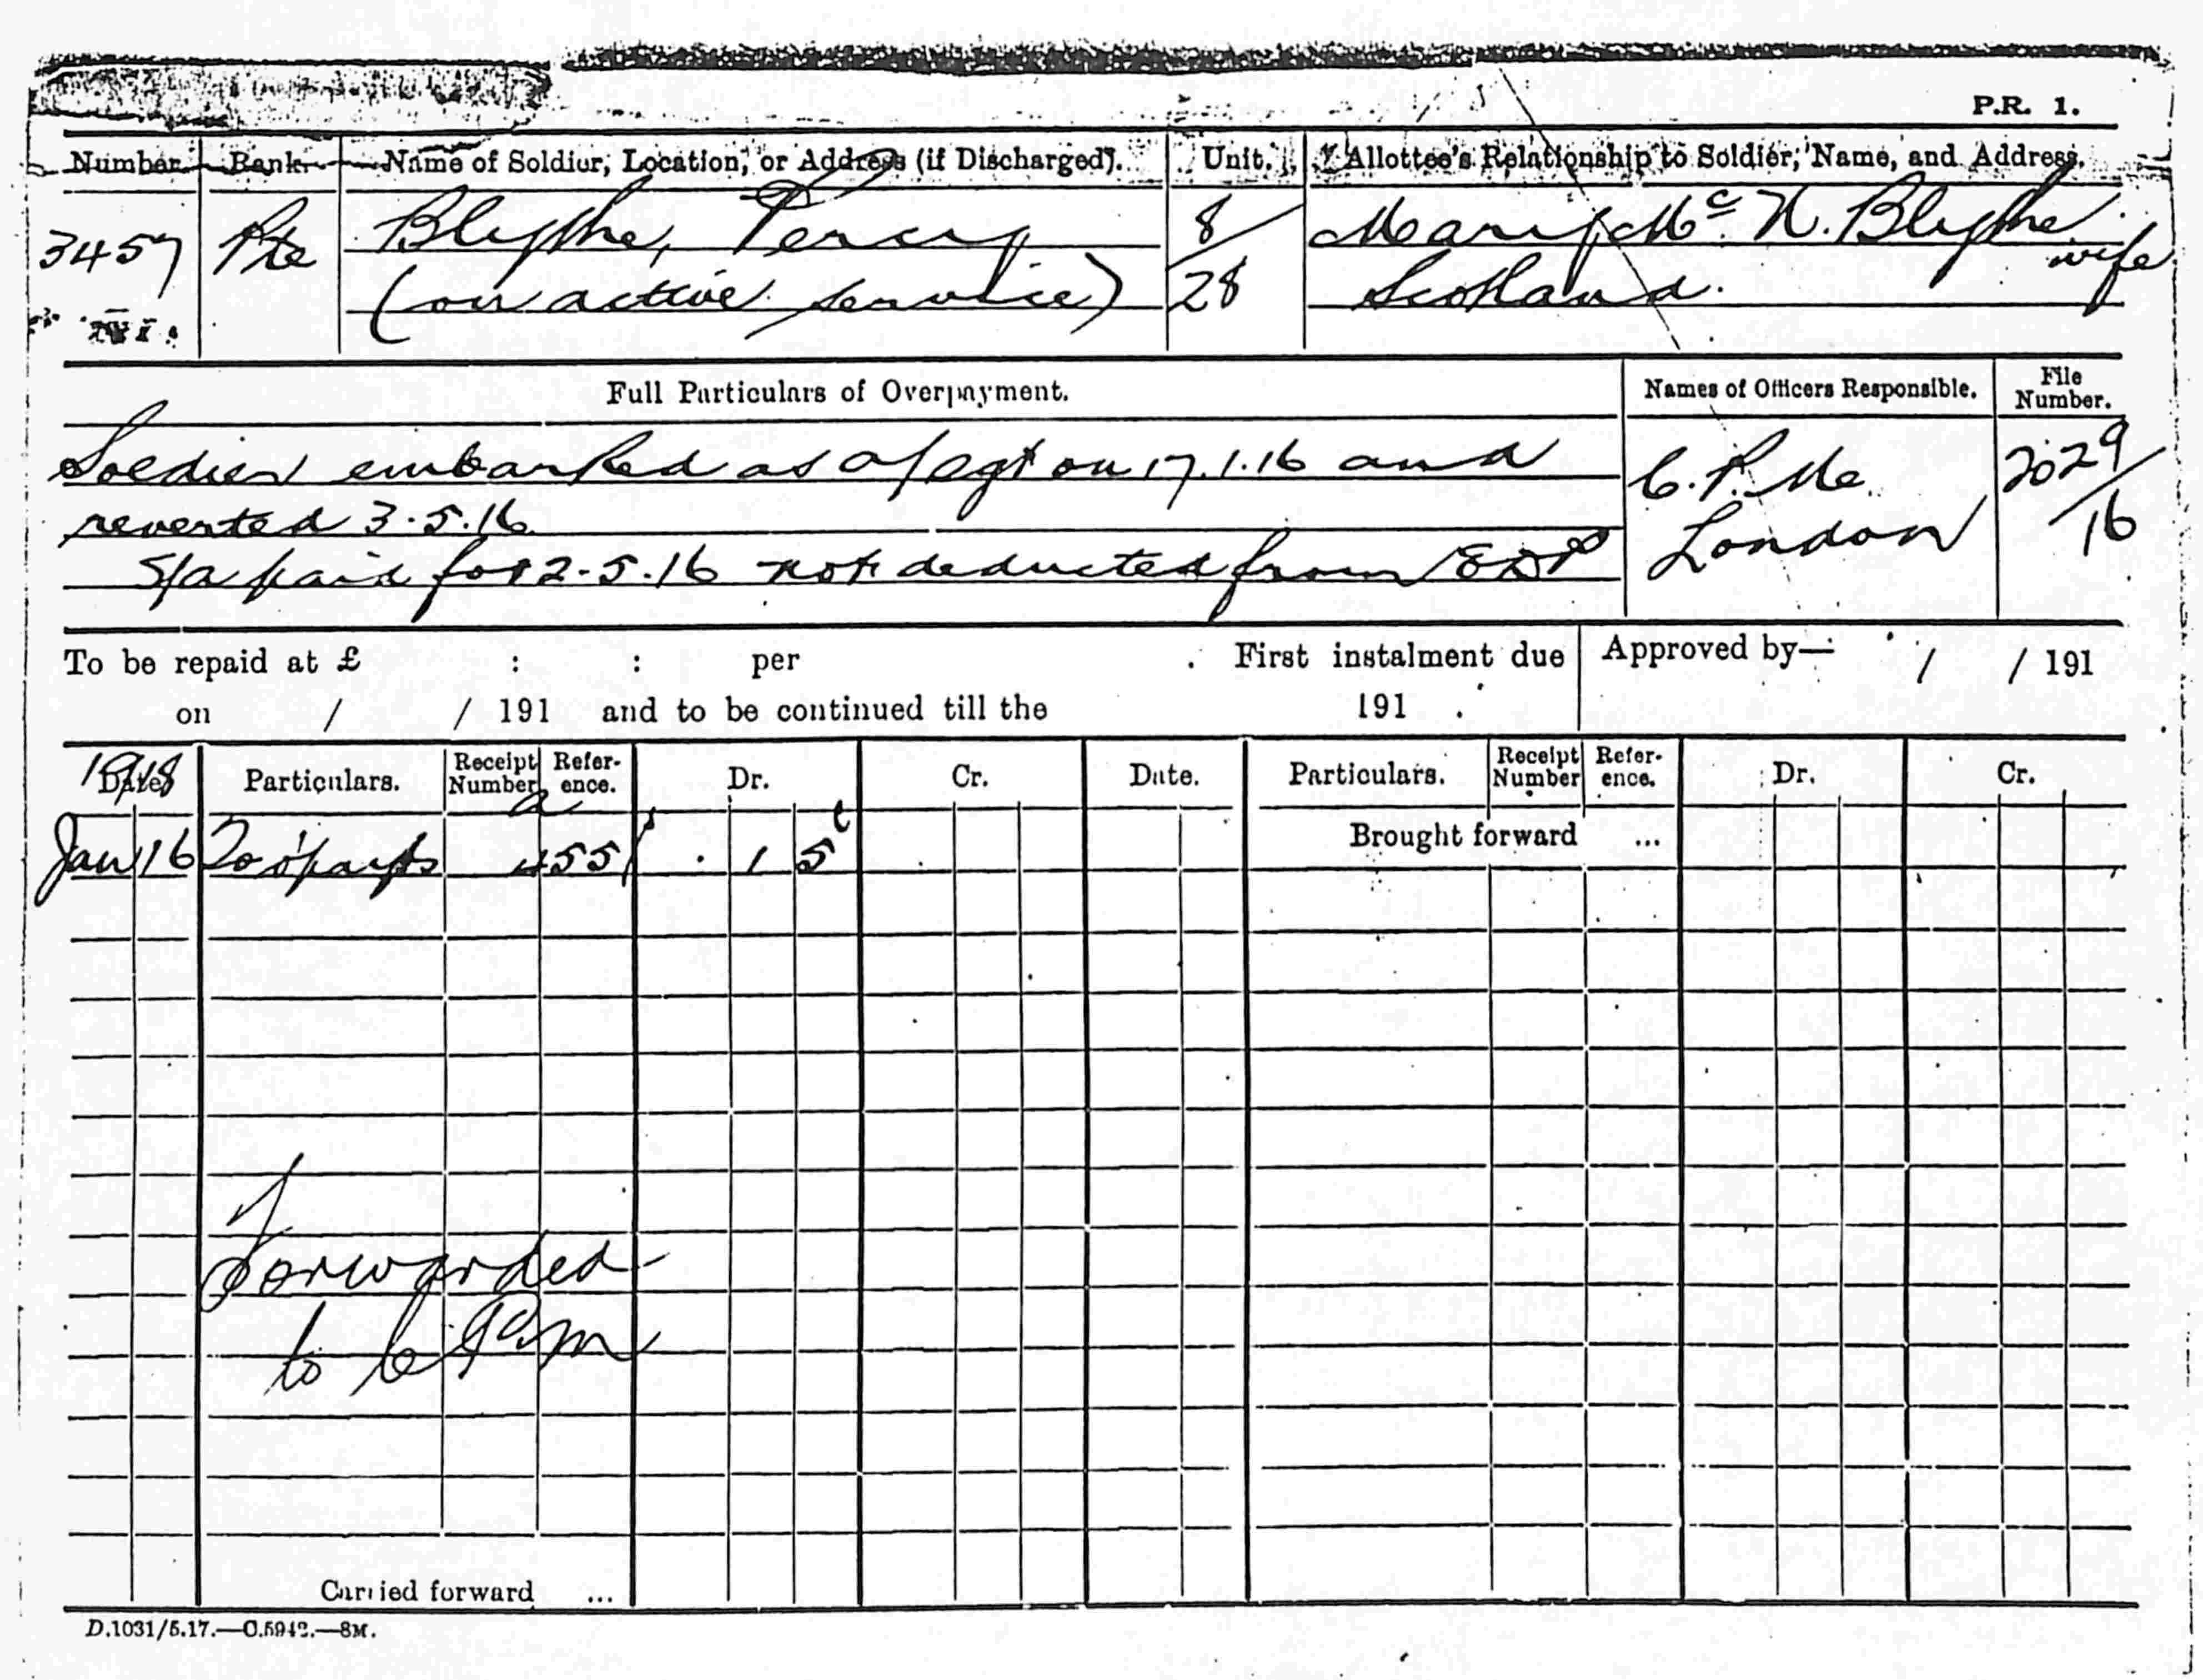 P.R. 1.
Number. Rank. Name of Soldier, Location, or Address (if Discharged). Unit. Allottee's Relationship to Soldier, Name, and Address.
3457 Pte Blythe, Percy 8/28 Mary Mc N. Blythe wife
(on active service) Scotland.
Full Particulars of Overpayment. Names of Officers Responsible. File Number.
Soldier embarked as a/sgt on 17.1.16 and C.P. Me. 2029/16
reverted 3.5.16 London
S/a paid for 2.5.16 not deducted from EDP
To be repaid at £ : : per . First instalment due Approved by— / / 191
on / / 191 and to be continued till the 191 .
1918
Date Particulars. Receipt Number Reference. Dr. Cr. Date. Particulars. Receipt Number Reference. Dr. Cr.
Jan 16 To o'payts a 455 . 1 5 Brought forward ...
Forwarded
to
Carried forward ...
D.1031/5.17.—C.5942.—8M.